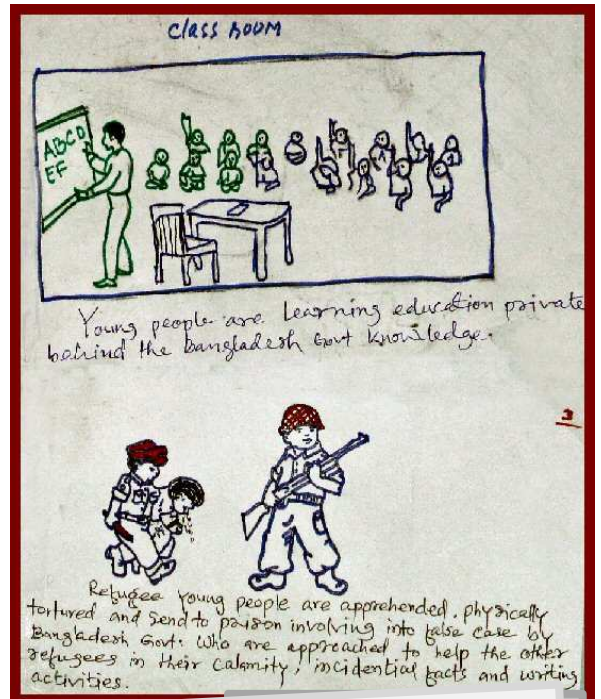 Class ROOM
ABCD
EF
Young people are learning education private
behind the Bangladesh Govt knowledge.
3
Refugee young people are apprehended, physically
tortured and send to prison involving into false case by
Bangladesh Govt: who are approached to help the other
refugees in their calamity, incidential facts and writing
activities.